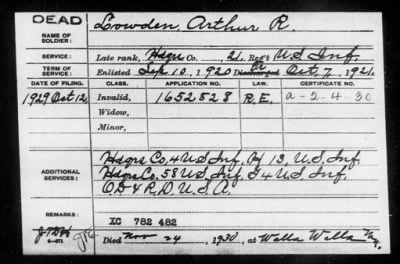 DEAD
Lowden, Arthur R.
NAME OF SOLDIER:
SERVICE: Late rank, Hdqrs Co. 21 Reg't U.S. Inf.
TERM OF SERVICE: Enlisted Sep. 10, 1920 Discharged Oct. 7, 1921.
DATE OF FILING. CLASS. APPLICATION NO. LAW. CERTIFICATE NO.
1929 Oct 12 Invalid, 1652528 R.E. a-2-4-30
Widow,
Minor,
ADDITIONAL SERVICES:
Hdqrs Co. 4 U.S. Inf., 13, U.S. Inf.
Hdqrs Co. 58 U.S. Inf., 4 U.S. Inf.
U.S.A.
REMARKS: XC 782 482
Died Nov 24, 1930, at Walla Walla